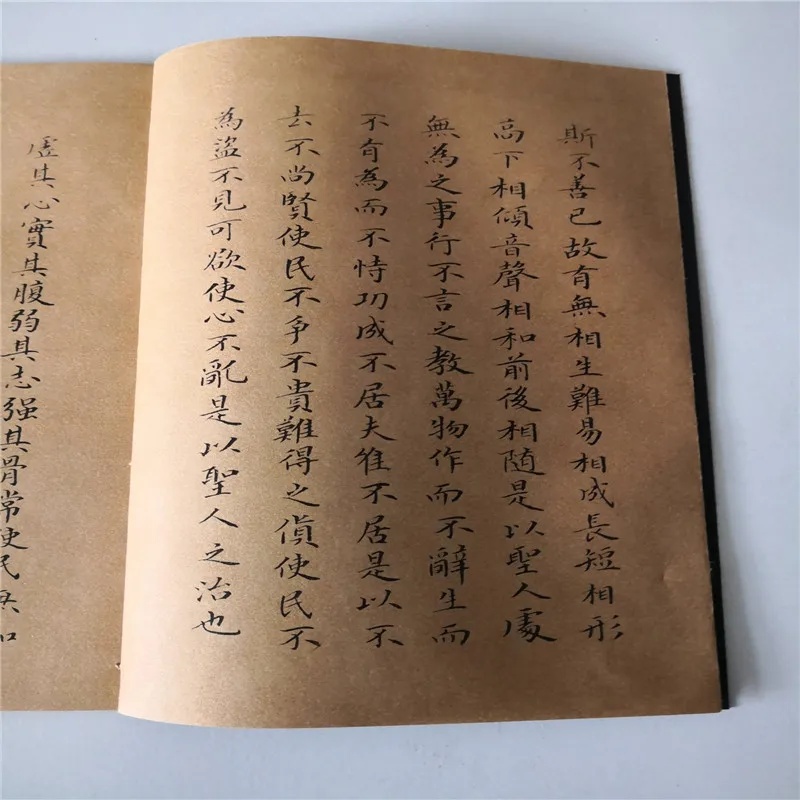 斯不善已故有無相生難易相成長短相形
高下相傾音聲相和前後相隨是以聖人處
無為之事行不言之教萬物作而不辭生而
不有為而不恃功成不居夫隹不居是以不
去不尚賢使民不爭不貴難得之貨使民不
為盜不見可欲使心不亂是以聖人之治也
虛其心實其腹弱其志强其骨常使民無知